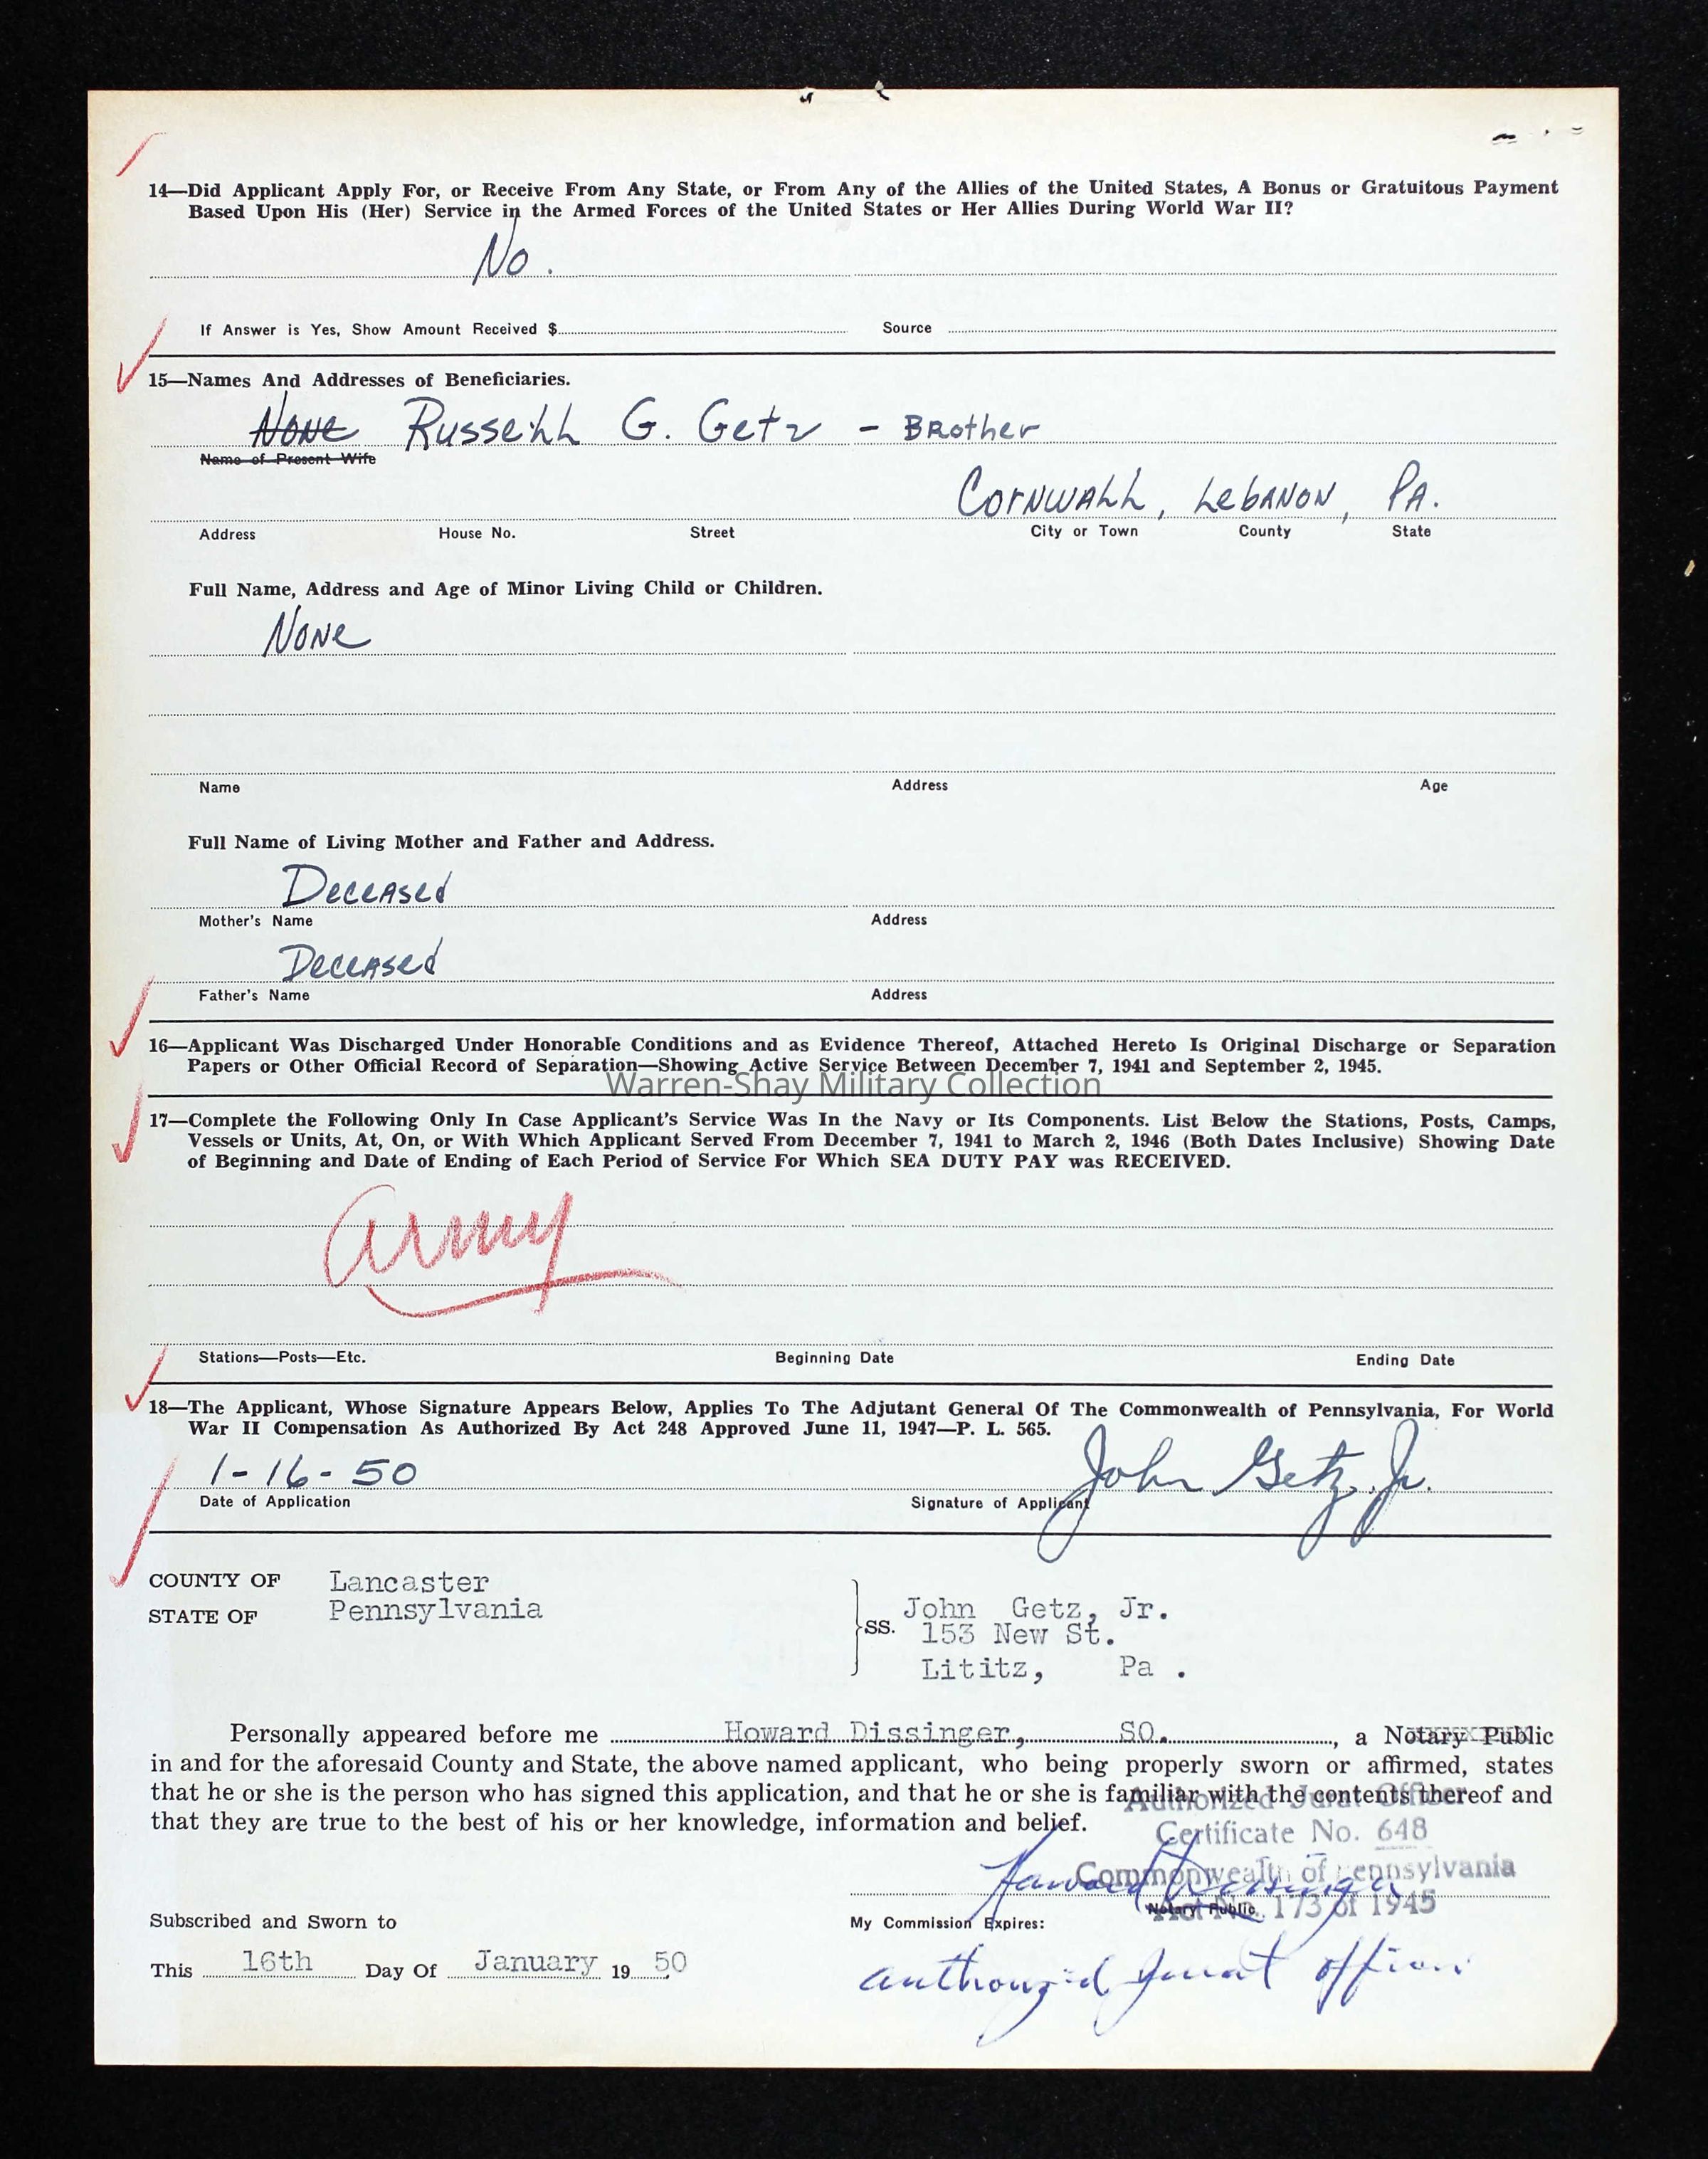 14—Did Applicant Apply For, or Receive From Any State, or From Any of the Allies of the United States, A Bonus or Gratuitous Payment
Based Upon His (Her) Service in the Armed Forces of the United States or Her Allies During World War II?
No.
If Answer is Yes, Show Amount Received $ Source
15—Names And Addresses of Beneficiaries.
None Russell G. Getz - Brother
Name of Present Wife
Cornwall, Lebanon, PA.
Address House No. Street City or Town County State
Full Name, Address and Age of Minor Living Child or Children.
None
Name Address Age
Full Name of Living Mother and Father and Address.
Deceased
Mother's Name Address
Deceased
Father's Name Address
16—Applicant Was Discharged Under Honorable Conditions and as Evidence Thereof, Attached Hereto Is Original Discharge or Separation
Papers or Other Official Record of Separation—Showing Active Service Between December 7, 1941 and September 2, 1945.
Warren-Shay Military Collection
17—Complete the Following Only In Case Applicant's Service Was In the Navy or Its Components. List Below the Stations, Posts, Camps,
Vessels or Units, At, On, or With Which Applicant Served From December 7, 1941 to March 2, 1946 (Both Dates Inclusive) Showing Date
of Beginning and Date of Ending of Each Period of Service For Which SEA DUTY PAY was RECEIVED.
Army
Stations—Posts—Etc. Beginning Date Ending Date
18—The Applicant, Whose Signature Appears Below, Applies To The Adjutant General Of The Commonwealth of Pennsylvania, For World
War II Compensation As Authorized By Act 248 Approved June 11, 1947—P. L. 565.
1-16-50 John Getz, Jr.
Date of Application Signature of Applicant
COUNTY OF Lancaster
STATE OF Pennsylvania
SS. John Getz, Jr.
153 New St.
Lititz, Pa .
Personally appeared before me Howard Dissinger, SO., a Notary Public
in and for the aforesaid County and State, the above named applicant, who being properly sworn or affirmed, states
that he or she is the person who has signed this application, and that he or she is familiar with the contents thereof and
Authorized Jurat Officer
that they are true to the best of his or her knowledge, information and belief.
Certificate No. 648
Commonwealth of Pennsylvania
Howard Dissinger
Act No. 173 of 1945
Notary Public
Subscribed and Sworn to My Commission Expires:
This 16th Day Of January 19 50
authorized Jurat officer